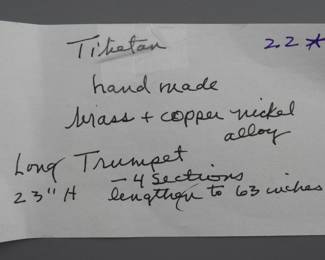 Tibetan 22*
hand made
brass + copper nickel
alloy
Long Trumpet
— 4 Sections
23" H lengthen to 63 inches